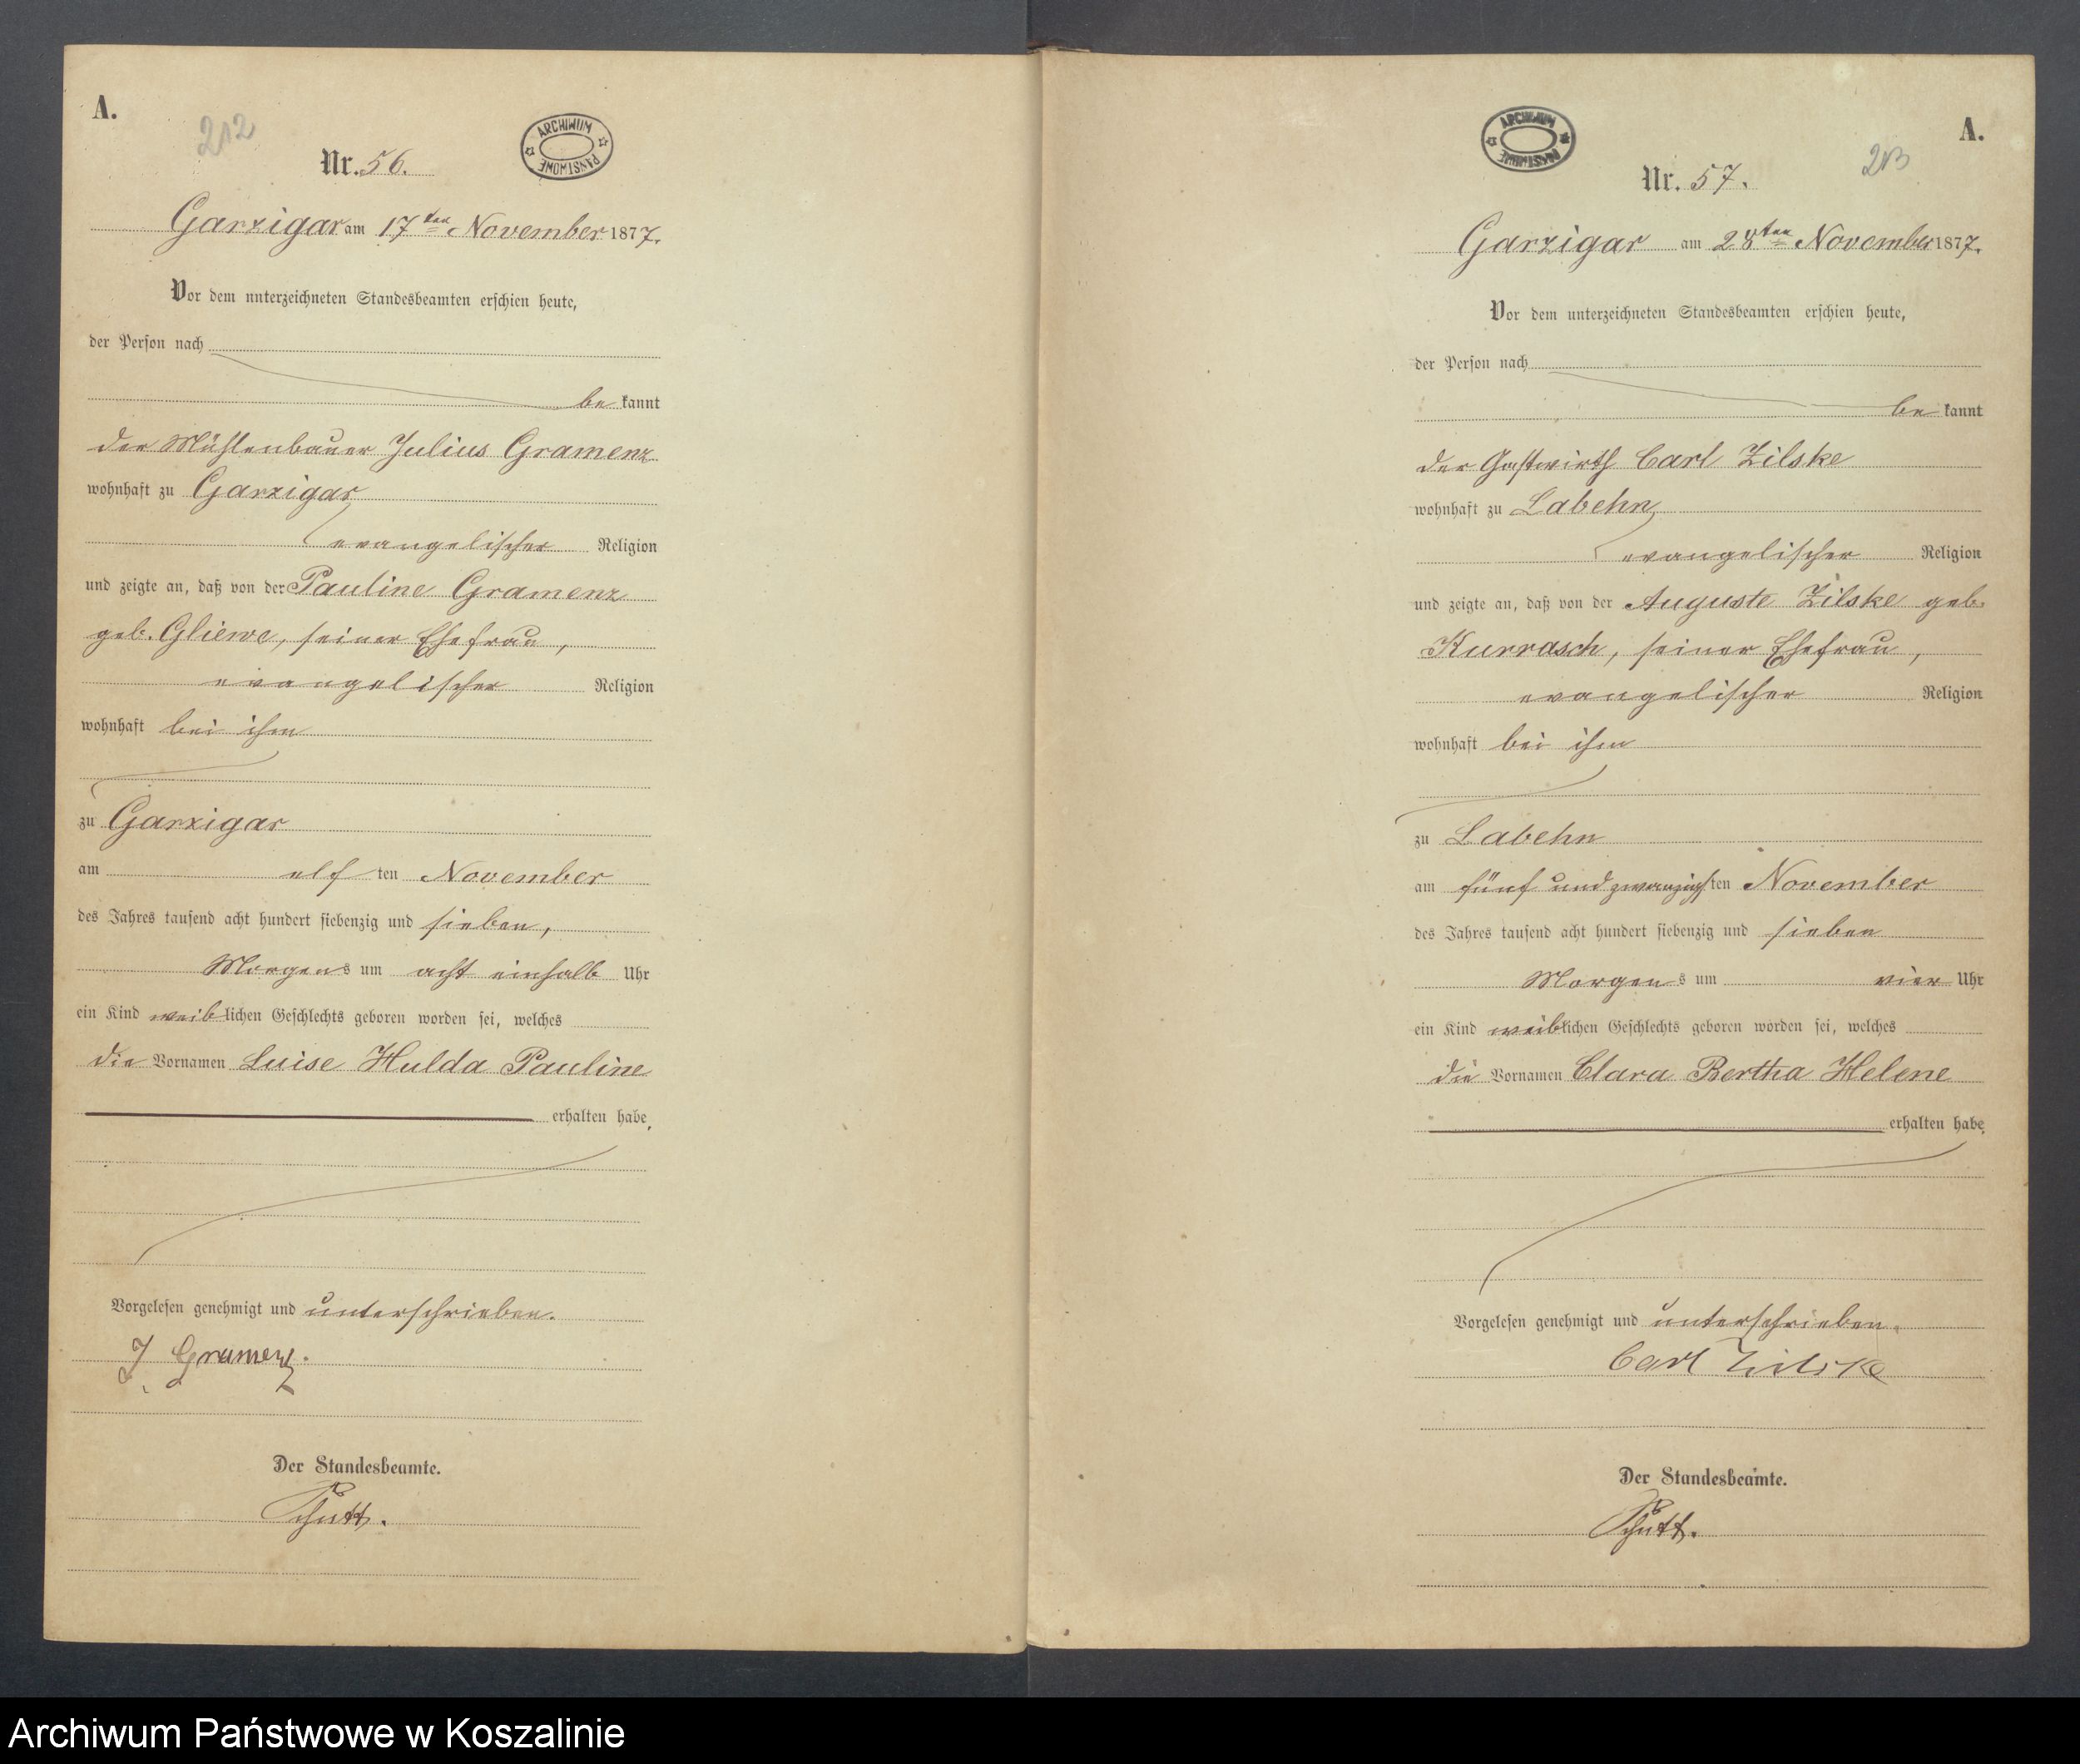 A.
212
ARCHIWUM PAŃSTWOWE
Nr. 56.
Garzigar am 17ten November 1877.
Vor dem unterzeichneten Standesbeamten erschien heute,
der Person nach
be kannt
der Mühlenbauer Julius Gramenz
wohnhaft zu Garzigar
evangelischer Religion
und zeigte an, daß von der Pauline Gramenz
geb. Gliewe, seiner Ehefrau,
evangelischer Religion
wohnhaft bei ihm
zu Garzigar
am elf ten November
des Jahres tausend acht hundert siebenzig und sieben,
Morgens um acht einhalb Uhr
ein Kind weiblichen Geschlechts geboren worden sei, welches
die Vornamen Luise Hulda Pauline
erhalten habe.
Vorgelesen genehmigt und unterschrieben.
J Gramenz.
Der Standesbeamte.
Schutt.
ARCHIWUM PAŃSTWOWE
A.
213
Nr. 57.
Garzigar am 28ten November 1877.
Vor dem unterzeichneten Standesbeamten erschien heute,
der Person nach
be kannt
der Gastwirth Carl Zilske
wohnhaft zu Labehn
evangelischer Religion
und zeigte an, daß von der Auguste Zilske geb.
Kurrasch, seiner Ehefrau,
evangelischer Religion
wohnhaft bei ihm
zu Labehn
am fünf und zwanzigsten November
des Jahres tausend acht hundert siebenzig und sieben
Morgens um vier Uhr
ein Kind weiblichen Geschlechts geboren worden sei, welches
die Vornamen Clara Bertha Helene
erhalten habe.
Vorgelesen genehmigt und unterschrieben.
Carl Zilske
Der Standesbeamte.
Schutt.
Archiwum Państwowe w Koszalinie